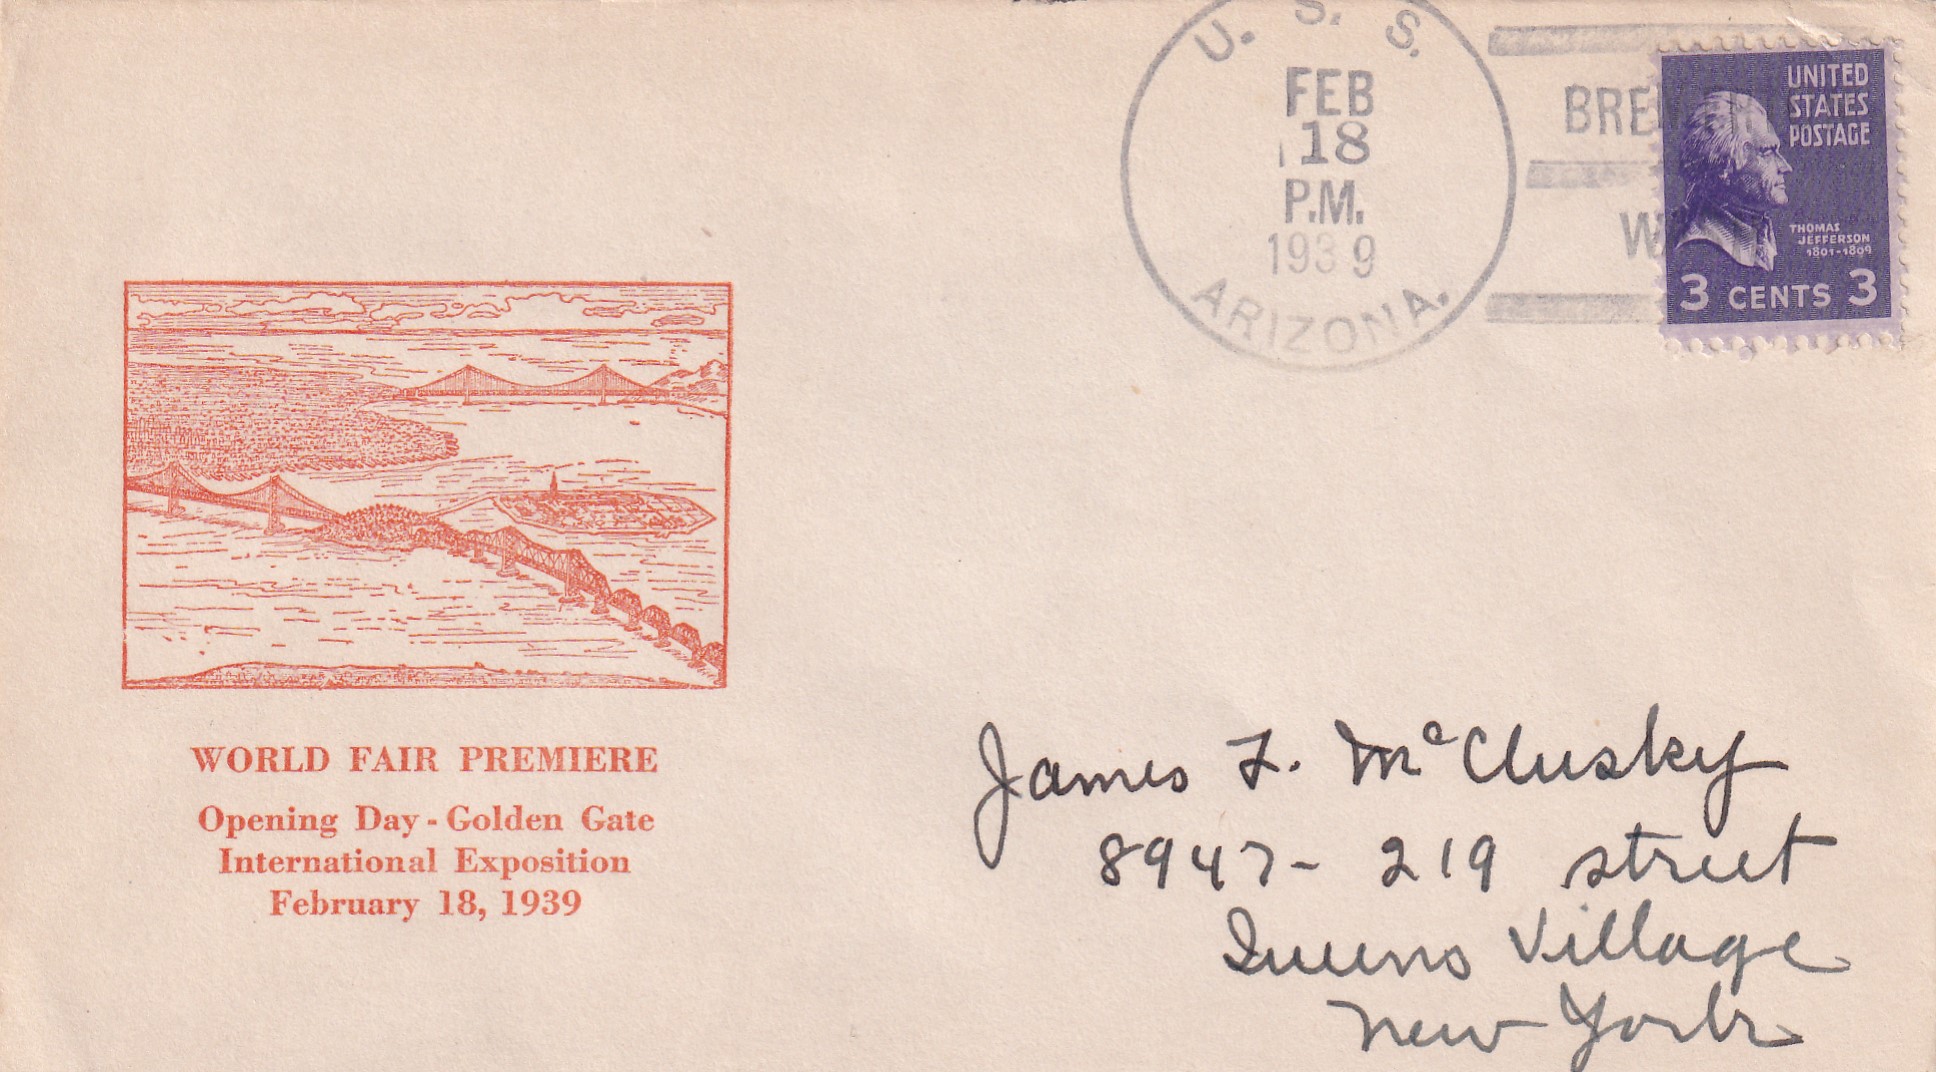 U. S. S.
FEB
18
P.M.
1939
ARIZONA.
BRE
W
UNITED
STATES
POSTAGE
THOMAS
JEFFERSON
1801-1809
3 CENTS 3
WORLD FAIR PREMIERE
Opening Day - Golden Gate
International Exposition
February 18, 1939
James F. McClusky
8947- 219 street
Queens Village
New York